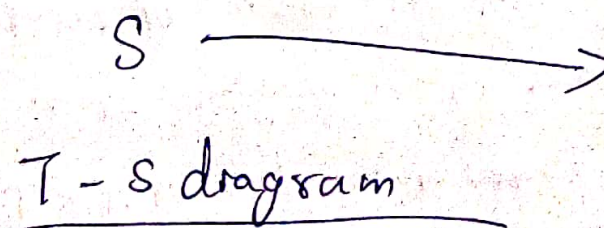 S
T - s diagram